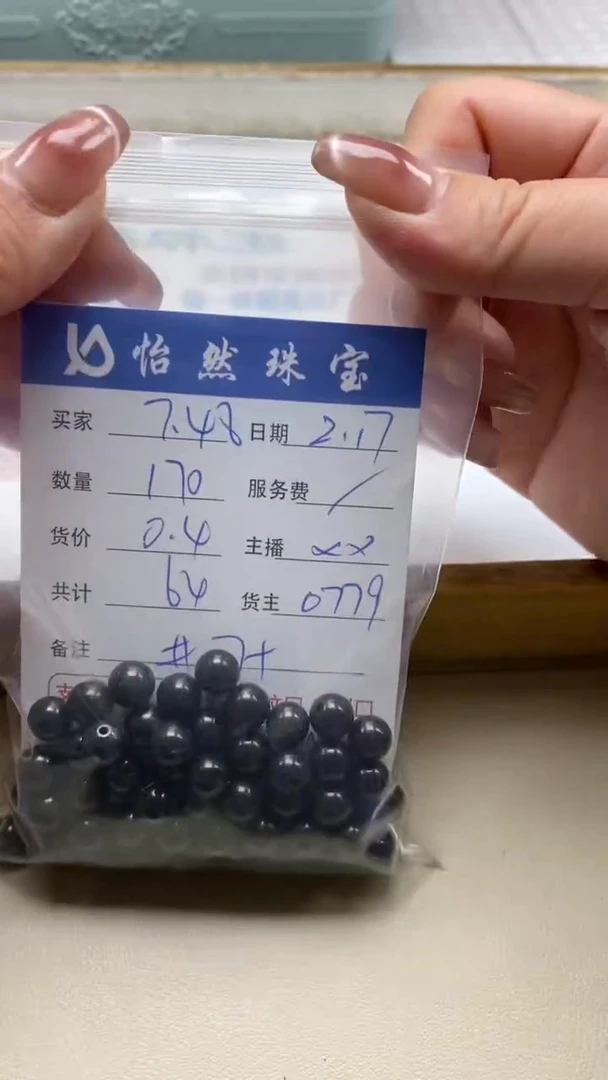 怡然珠宝
买家 7.48 日期 2.17
数量 170 服务费 /
货价 0.4 主播 xx
共计 64 货主 0779
备注